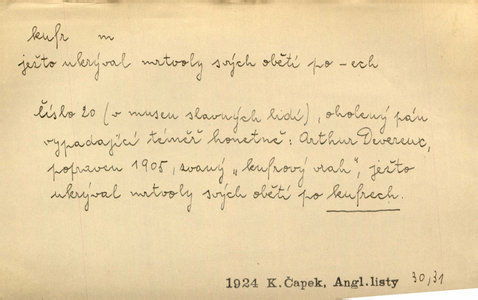 kufr m
ješto ukrýval mrtvoly svých obětí po -ech
Číslo 20 (v museu slavných lidí), oholený pán
vypadající téměř honetně: Arthur Devereux,
popraven 1905, zvaný „kufrový vrah“, ješto
ukrýval mrtvoly svých obětí po kufrech.
1924 K.Čapek, Angl.listy 30,31